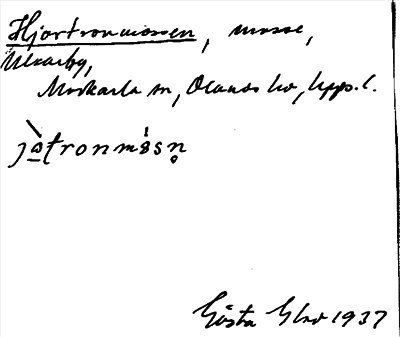 Hjortronmossen, mosse,
Ulvarby,
Morkarla sn, Olands hd, Upps. l.
jòtronmåsn̥
Gösta Elvo 1937